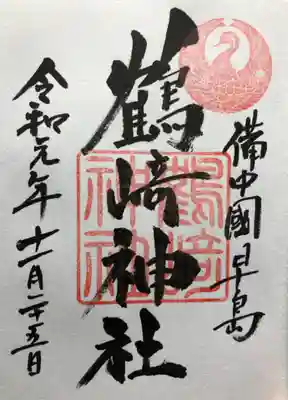 備中國早島
鶴﨑神社
鶴﨑神社
令和元年十一月二十五日